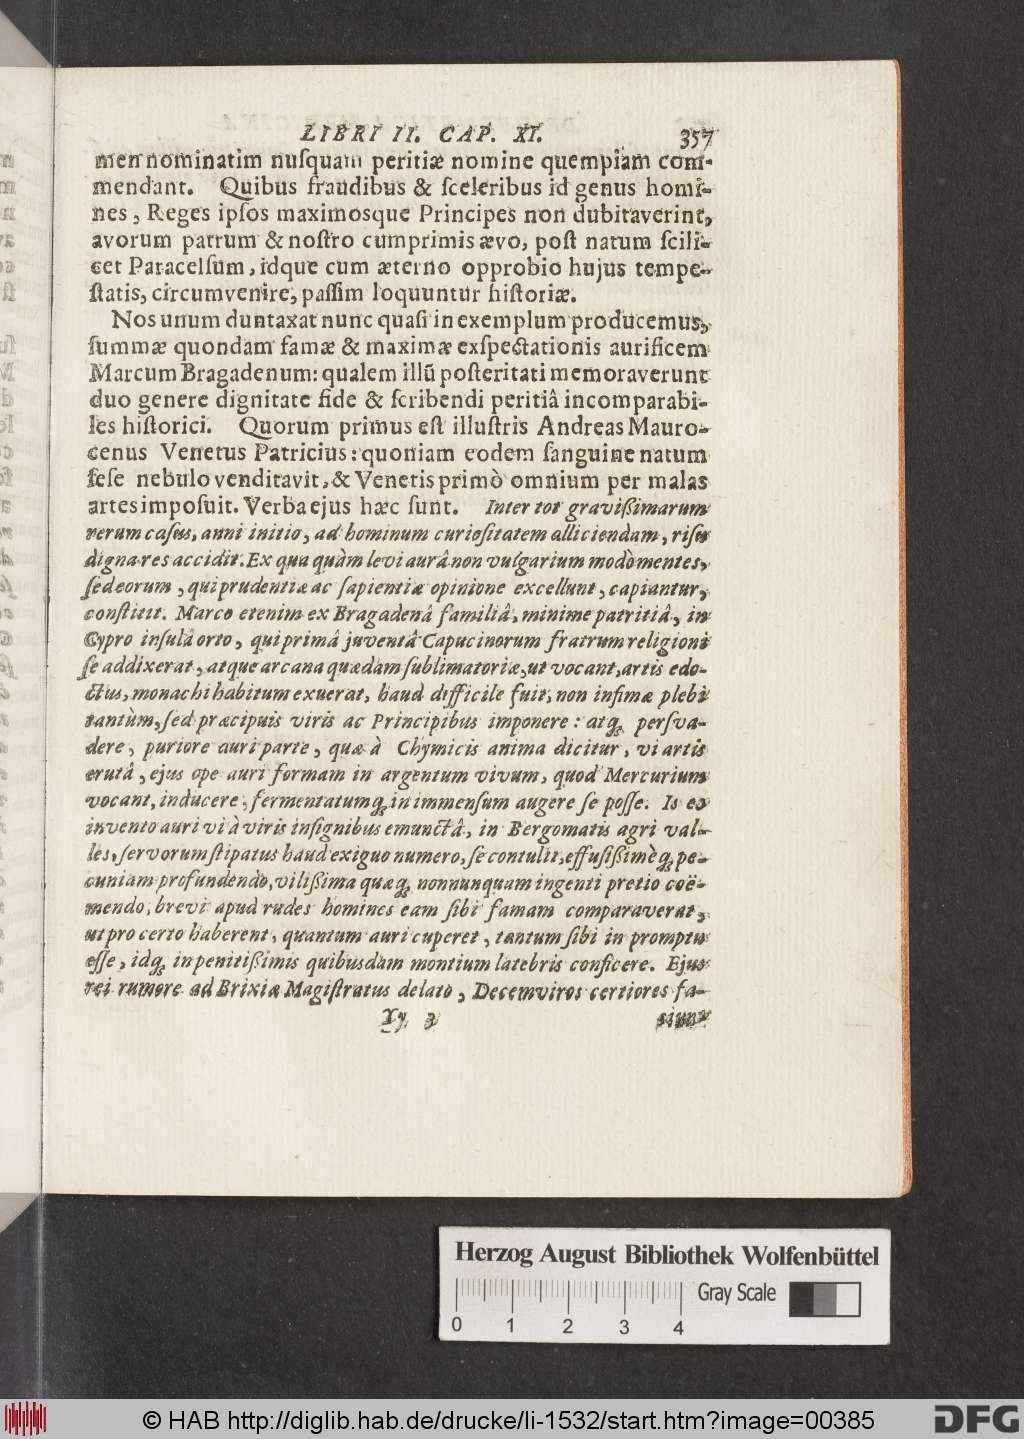 LIBRI II. CAP. XI. 357
men nominatim nuſquam peritiæ nomine quempiam com-
mendant. Quibus fraudibus & ſceleribus id genus homi-
nes, Reges ipſos maximosque Principes non dubitaverint,
avorum patrum & noſtro cumprimis ævo, poſt natum ſcili-
cet Paracelſum, idque cum æterno opprobio hujus tempe-
ſtatis, circumvenire, paſſim loquuntur hiſtoriæ.
Nos unum duntaxat nunc quaſi in exemplum producemus,
ſummæ quondam famæ & maximæ exſpectationis aurificem
Marcum Bragadenum: qualem illũ poſteritati memoraverunt
duo genere dignitate fide & ſcribendi peritiâ incomparabi-
les hiſtorici. Quorum primus eſt illuſtris Andreas Mauro-
cenus Venetus Patricius: quoniam eodem ſanguine natum
ſeſe nebulo venditavit, & Venetis primò omnium per malas
artes impoſuit. Verba ejus hæc ſunt. Inter tot graviſſimarum
rerum caſus, anni initio, ad hominum curioſitatem alliciendam, riſu
digna res accidit. Ex qua quàm levi aurâ non vulgarium modò mentes,
ſed eorum, qui prudentiæ ac ſapientiæ opinione excellunt, capiantur,
conſtitit. Marco etenim ex Bragadenâ familiâ, minime patritiâ, in
Cypro inſulâ orto, qui primâ juventâ Capucinorum fratrum religioni
ſe addixerat, atque arcana quædam ſublimatoriæ, ut vocant, artis edo-
ctus, monachi habitum exuerat, haud difficile fuit, non infimæ plebi
tantùm, ſed præcipuis viris ac Principibus imponere: atq; perſva-
dere, puriore auri parte, quæ à Chymicis anima dicitur, vi artis
erutâ, ejus ope auri formam in argentum vivum, quod Mercurium
vocant, inducere, fermentatumq; in immenſum augere ſe poſſe. Is eo
invento auri vi à viris inſignibus emunctâ, in Bergomatis agri val-
les, ſervorum ſtipatus haud exiguo numero, ſe contulit, effuſiſſimèq; pe-
cuniam profundendo, viliſſima quæq; nonnunquam ingenti pretio coë-
mendo, brevi apud rudes homines eam ſibi famam comparaverat,
ut pro certo haberent, quantum auri cuperet, tantum ſibi in promptu
eſſe, idq; in penitiſſimis quibusdam montium latebris conficere. Ejus
rei rumore ad Brixiæ Magiſtratus delato, Decemviros certiores fa-
Yy 3
Herzog August Bibliothek Wolfenbüttel
Gray Scale
0 1 2 3 4
© HAB http://diglib.hab.de/drucke/li-1532/start.htm?image=00385
DFG